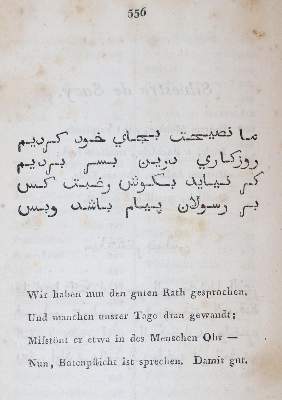 556
ما نصيحت بجاي خود كرديم
روزكاري درين بسر برديم
كر نيايد بكوش رغبت كس
بر رسولان پيام باشد وبس
Wir haben nun den guten Rath gesprochen,
Und manchen unsrer Tage dran gewandt;
Mifstönt er etwa in des Menschen Ohr —
Nun, Botenpflicht ist sprechen. Damit gut.